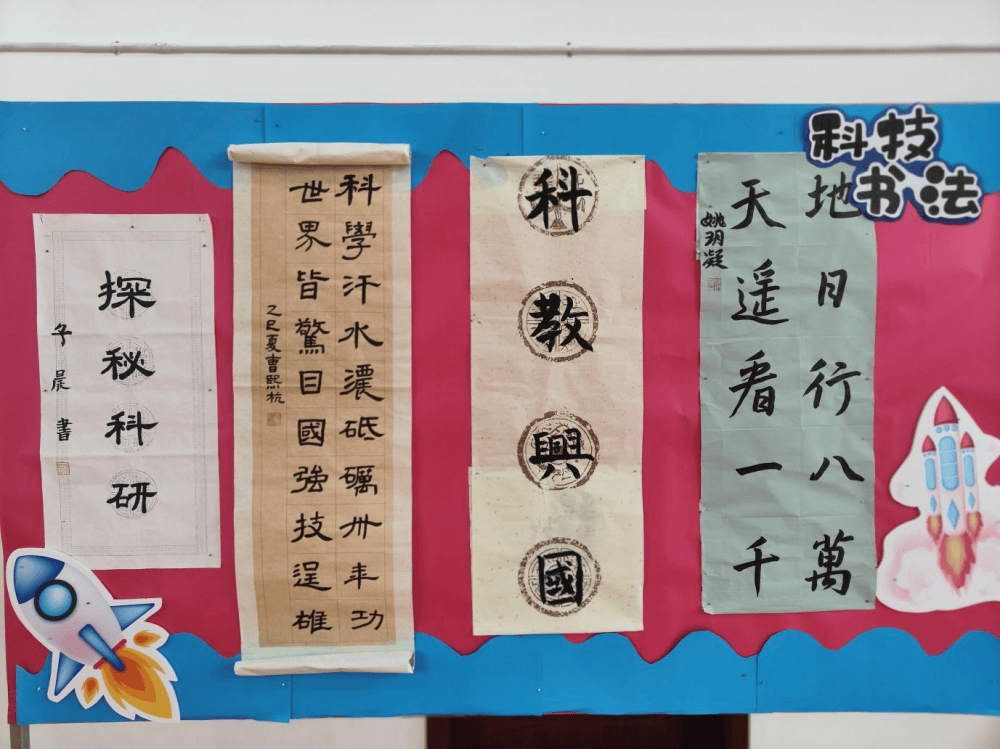 科技
书法
探秘科研
子晨書
科學汗水濃砥礪卅年功
世界皆驚目國強技逞雄
乙巳夏曹熙杭
科教興國
地日行八萬
天遥看一千
姚玥凝